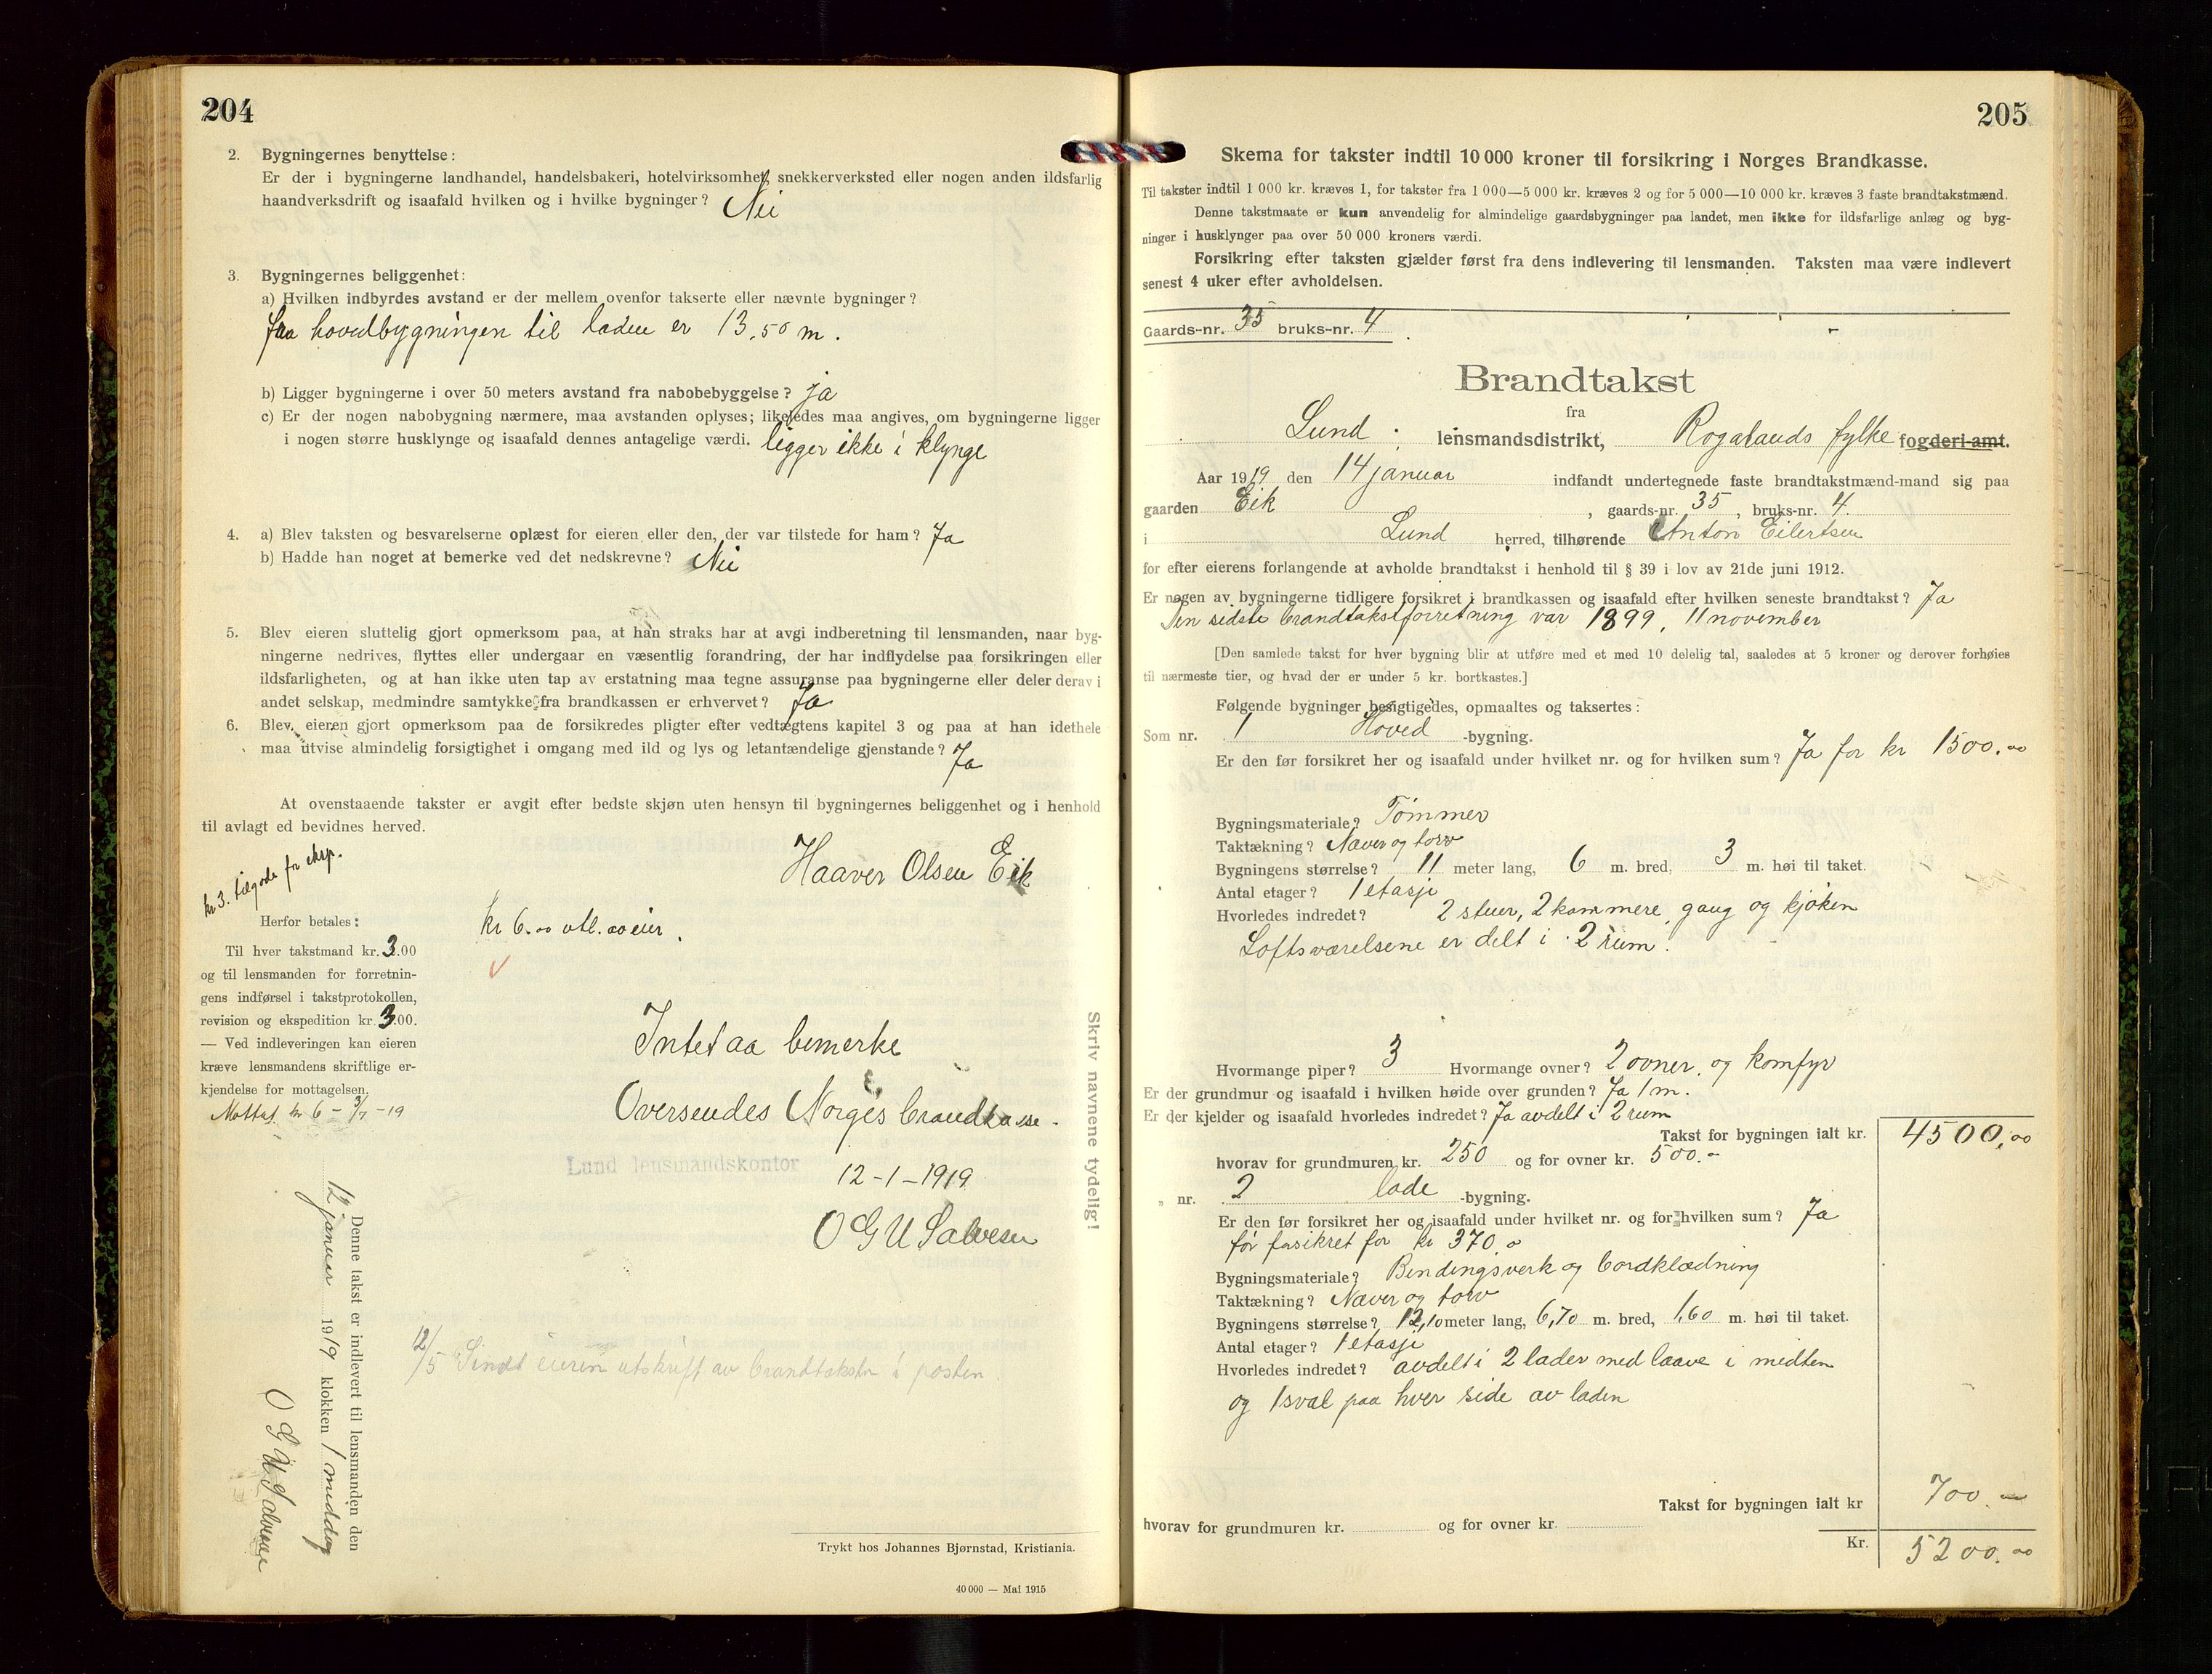 204
2. Bygningernes benyttelse:
Er der i bygningerne landhandel, handelsbakeri, hotelvirksomhet, snekkerverksted eller nogen anden ildsfarlig
haandverksdrift og isaafald hvilken og i hvilke bygninger? Nei
3. Bygningernes beliggenhet:
a) Hvilken indbyrdes avstand er der mellem ovenfor takserte eller nævnte bygninger?
fra hovedbygningen til laden er 13,50 m.
b) Ligger bygningerne i over 50 meters avstand fra nabobebyggelse? ja
c) Er der nogen nabobygning nærmere, maa avstanden oplyses; likeledes maa angives, om bygningerne ligger
i nogen større husklynge og isaafald dennes antagelige værdi. ligger ikke i klynge
4. a) Blev taksten og besvarelserne oplæst for eieren eller den, der var tilstede for ham? Ja
b) Hadde han noget at bemerke ved det nedskrevne? Nei
5. Blev eieren sluttelig gjort opmerksom paa, at han straks har at avgi indberetning til lensmanden, naar byg-
ningerne nedrives, flyttes eller undergaar en væsentlig forandring, der har indflydelse paa forsikringen eller
ildsfarligheten, og at han ikke uten tap av erstatning maa tegne assuranse paa bygningerne eller deler derav i
andet selskap, medmindre samtykke fra brandkassen er erhvervet? Ja
6. Blev eieren gjort opmerksom paa de forsikredes pligter efter vedtægtens kapitel 3 og paa at han idethele
maa utvise almindelig forsigtighet i omgang med ild og lys og letantændelige gjenstande? Ja
At ovenstaaende takster er avgit efter bedste skjøn uten hensyn til bygningernes beliggenhet og i henhold
til avlagt ed bevidnes herved.
Haaver Olsen Eik
kr 3. tilgode for eksp.
Herfor betales:
Til hver takstmand kr. 3.00
og til lensmanden for forretnin-
gens indførsel i takstprotokollen,
revision og ekspedition kr. 3.00.
— Ved indleveringen kan eieren
kræve lensmandens skriftlige er-
kjendelse for mottagelsen.
kr 6.00 utl. av eier.
Intet aa bemerke
Oversendes Norges brandkasse.
Lund lensmandskontor
12-1-1919
O G U Salvesen
Skriv navnene tydelig!
Denne takst er indlevert til lensmanden den
12 januar 1919 klokken 1 middag
O G U Salvesen
12/5 Sendt eieren utskrift av brandtaksten i posten.
Trykt hos Johannes Bjørnstad, Kristiania.
40 000 — Mai 1915
205
Skema for takster indtil 10 000 kroner til forsikring i Norges Brandkasse.
Til takster indtil 1 000 kr. kræves 1, for takster fra 1 000—5 000 kr. kræves 2 og for 5 000—10 000 kr. kræves 3 faste brandtakstmænd.
Denne takstmaate er kun anvendelig for almindelige gaardsbygninger paa landet, men ikke for ildsfarlige anlæg og byg-
ninger i husklynger paa over 50 000 kroners værdi.
Forsikring efter taksten gjælder først fra dens indlevering til lensmanden. Taksten maa være indlevert
senest 4 uker efter avholdelsen.
Gaards-nr. 35 bruks-nr. 4
Brandtakst
fra
Lund lensmandsdistrikt, Rogalands fylke fogderi-amt.
Aar 1919 den 14 januar indfandt undertegnede faste brandtakstmænd-mand sig paa
gaarden Eik, gaards-nr. 35, bruks-nr. 4.
i Lund herred, tilhørende Anton Eilertsen
for efter eierens forlangende at avholde brandtakst i henhold til § 39 i lov av 21de juni 1912.
Er nogen av bygningerne tidligere forsikret i brandkassen og isaafald efter hvilken seneste brandtakst? Ja
Den sidste brandtakstforretning var 1899, 11 november
[Den samlede takst for hver bygning blir at utføre med et med 10 delelig tal, saaledes at 5 kroner og derover forhøies
til nærmeste tier, og hvad der er under 5 kr. bortkastes.]
Følgende bygninger besigtigedes, opmaaltes og taksertes:
Som nr. 1 Hoved -bygning.
Er den før forsikret her og isaafald under hvilket nr. og for hvilken sum? Ja for kr 1500.00
Bygningsmateriale? Tømmer
Taktækning? Næver og torv
Bygningens størrelse? 11 meter lang, 6 m. bred, 3 m. høi til taket.
Antal etager? 1 etasje
Hvorledes indredet? 2 stuer, 2 kammere, gang og kjøken
Loftsværelsene er delt i 2 rum.
Hvormange piper? 3 Hvormange ovner? 2 ovner, og komfyr
Er der grundmur og isaafald i hvilken høide over grunden? Ja 1 m.
Er der kjelder og isaafald hvorledes indredet? Ja avdelt i 2 rum
Takst for bygningen ialt kr. 4500,00
hvorav for grundmuren kr. 250 og for ovner kr. 500.-
„ nr. 2 lade -bygning.
Er den før forsikret her og isaafald under hvilket nr. og for hvilken sum? Ja
før forsikret for kr 370.0
Bygningsmateriale? Bindingsverk og bordklædning
Taktækning? Næver og torv
Bygningens størrelse? 12,10 meter lang, 6,70 m. bred, 1,60 m. høi til taket.
Antal etager? 1 etasje
Hvorledes indredet? avdelt i 2 lader med laave i midten
og 1 sval paa hver side av laden
Takst for bygningen ialt kr 700.-
hvorav for grundmuren kr. og for ovner kr.
Kr. 5200.00